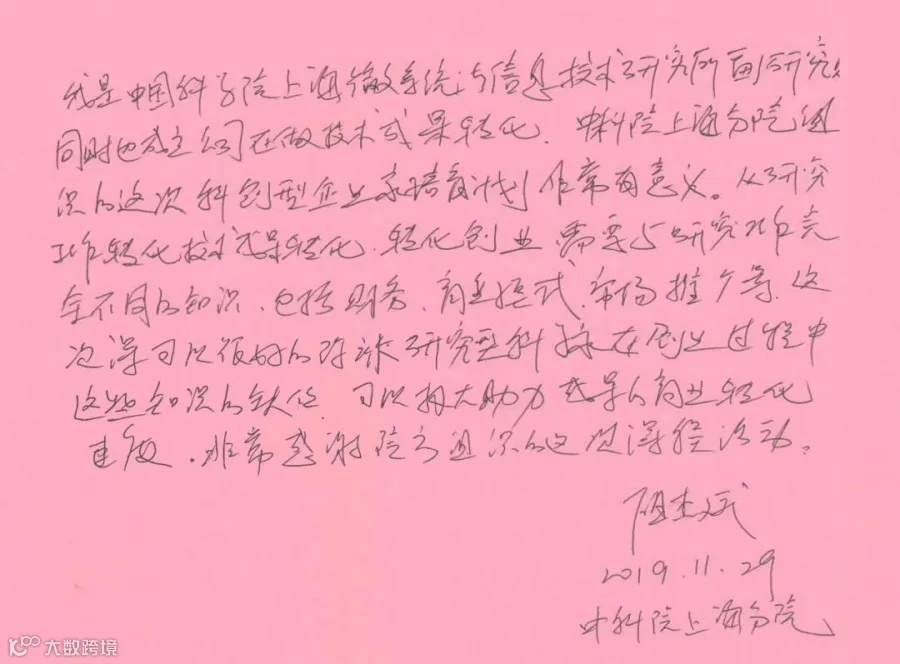 我是中国科学院上海微系统与信息技术研究所副研究
同时也成立公司在做技术成果转化. 中科院上海分院组
织的这次科创型企业家培育计划非常有意义。从研究
工作转化技术成果转化、转化创业需要与研究工作完
全不同的知识、包括财务、商业模式、市场推广等、这
次课可以很好的弥补研究型科 在创业过程中
这些知识的缺位、可以极大助力成果的商业转化
速度. 非常感谢院方组织的这次课程活动。
2019.11.29
中科院上海分院
大数跨境